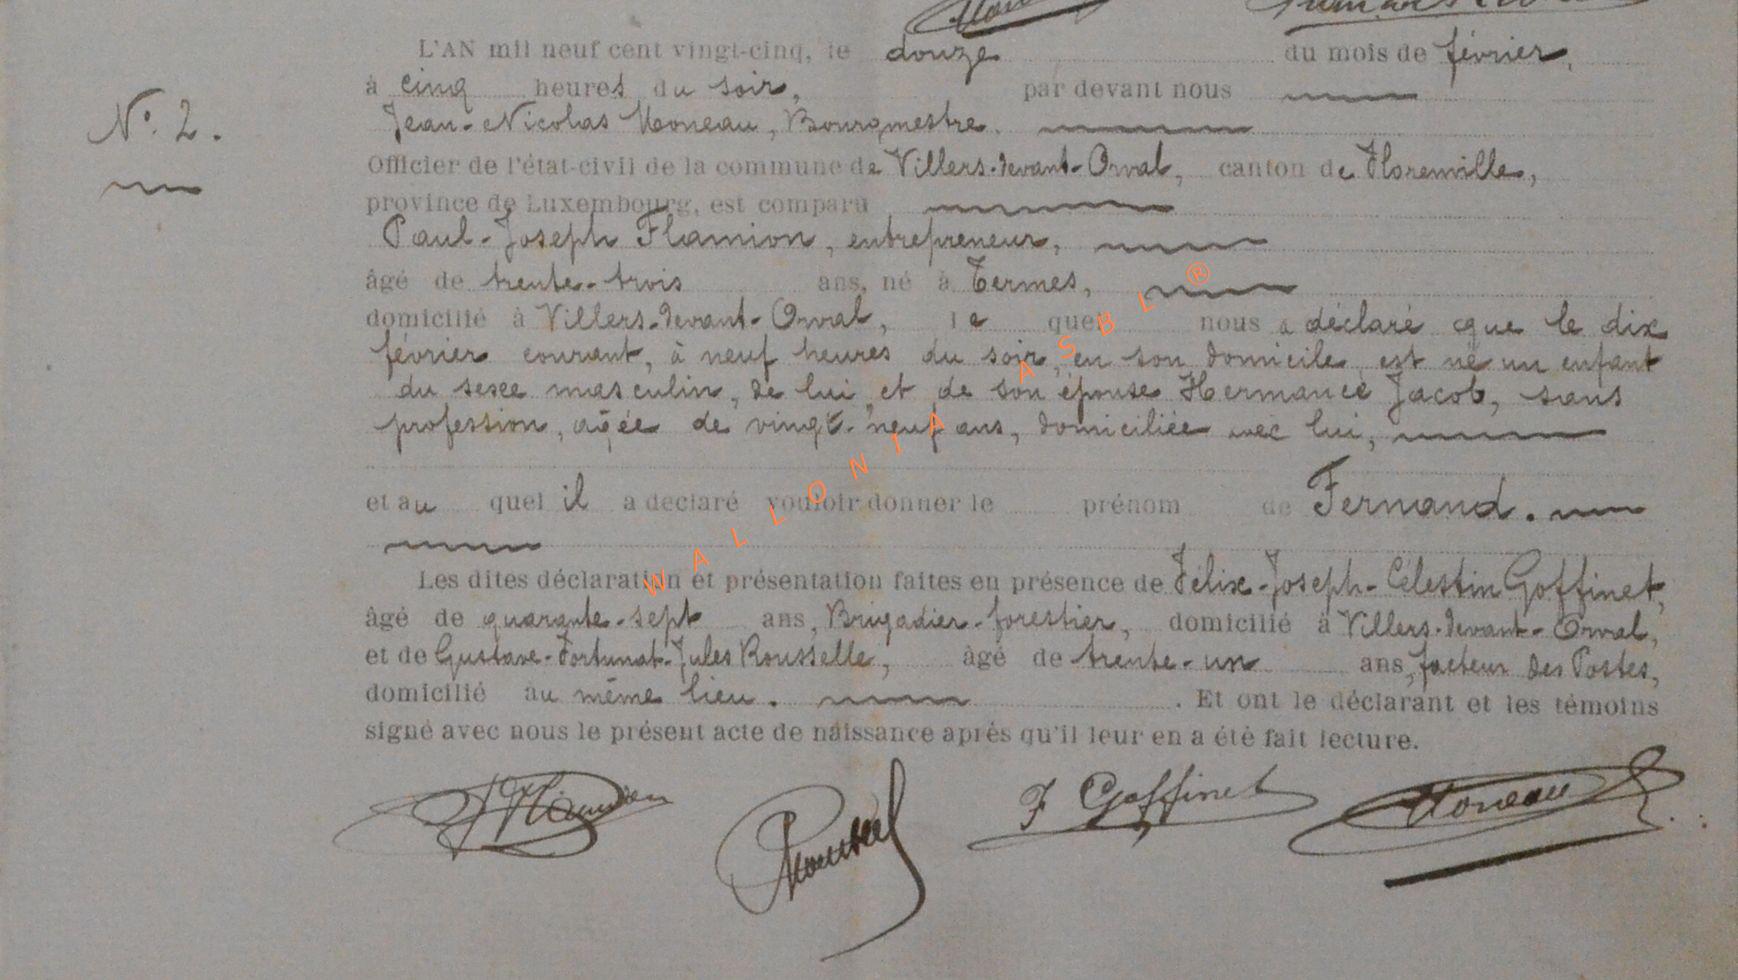 L'AN mil neuf cent vingt-cinq, le douze du mois de février,
à cinq heures du soir, par devant nous
N° 2.
Jean-Nicolas Moneau, Bourgmestre.
Officier de l'état-civil de la commune de Villers-devant-Orval, canton de Florenville,
province de Luxembourg, est comparu
Paul-Joseph Flamion, entrepreneur,
âgé de trente-trois ans, né à Termes,
domicilié à Villers-devant-Orval, le quel nous a déclaré que le dix
février courant, à neuf heures du soir, en son domicile, est né un enfant
du sexe masculin, de lui et de son épouse Hermance Jacob, sans
profession, agée de vingt-neuf ans, domiciliée avec lui,
et au quel il a déclaré vouloir donner le prénom de Fernand.
Les dites déclaration et présentation faites en présence de Félix-Joseph-Célestin Goffinet,
âgé de quarante-sept ans, Brigadier-forestier, domicilié à Villers-devant-Orval,
et de Gustave-Fortunat-Jules Rousselle, âgé de trente-un ans, facteur des Postes,
domicilié au même lieu. . Et ont le déclarant et les témoins
signé avec nous le présent acte de naissance après qu'il leur en a été fait lecture.
F Goffinet Moneau
WALLONIA ASBL ®